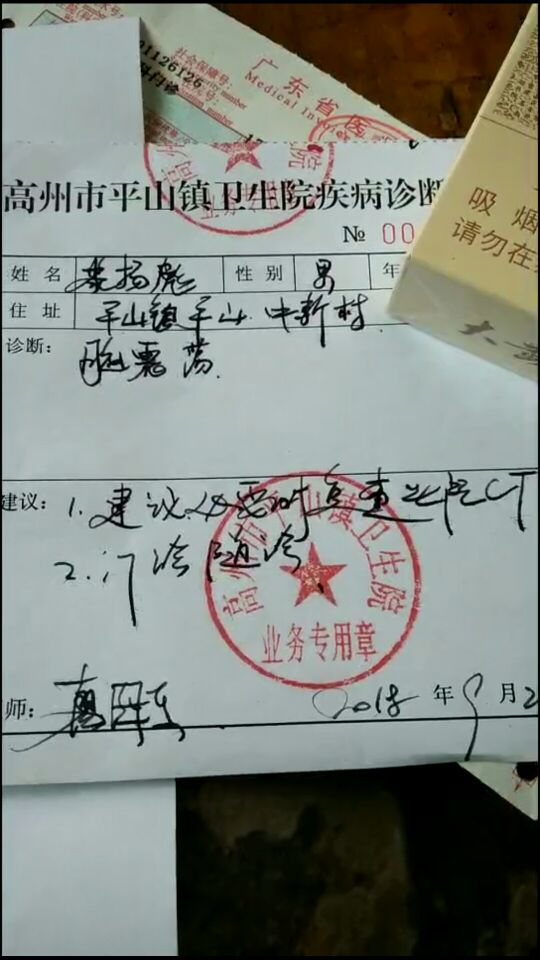 01126126
社会保障号:
Social security number
广东省医
Medical Inv
高州市平山镇卫生院疾病诊断
业务专用章
№ 00
吸烟
请勿在
姓名 扬彪 性别 男 年
住址 平山镇平山中新村
诊断: 脑震荡
建议: 1. 建议必要时复查头颅CT
2. 门诊随诊
高州市平山镇卫生院
业务专用章
师:
2018 年 9 月 2